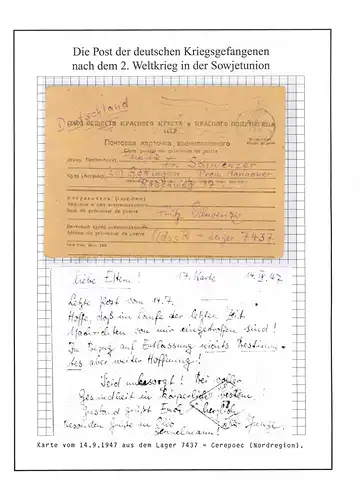 Die Post der deutschen Kriegsgefangenen
nach dem 2. Weltkrieg in der Sowjetunion
Deutschland
СОЮЗ ОБЩЕСТВ КРАСНОГО КРЕСТА и КРАСНОГО ПОЛУМЕСЯЦА
СССР
Почтовая карточка военнопленного
Carte postale du prisonnier de guerre
Кому (Destinataire)
Куда (Adresse) Göttingen Prov. Hannover
Отправитель (Expéditeur)
Фамилия и имя военнопленного
Nom du prisonnier de guerre Fritz
Почтовый адрес военнопленного
Adresse du prisonnier de guerre UdSSR - Lager 7437
Liebe Eltern! 17. Karte 14.IX.47
Letzte Post vom 14.7.
Hoffe, daß im Laufe der letzten Zeit
Nachrichten von mir eingetroffen sind!
In Bezug auf Entlassung nichts Bestimm-
tes aber weiter Hoffnung!
Seid unbesorgt! Bei voller
Gesundheit in körperlich bestem
Zustand grüßt Euch herzlich
besonders Große an
Karte vom 14.9.1947 aus dem Lager 7437 = Cerepoec (Nordregion).